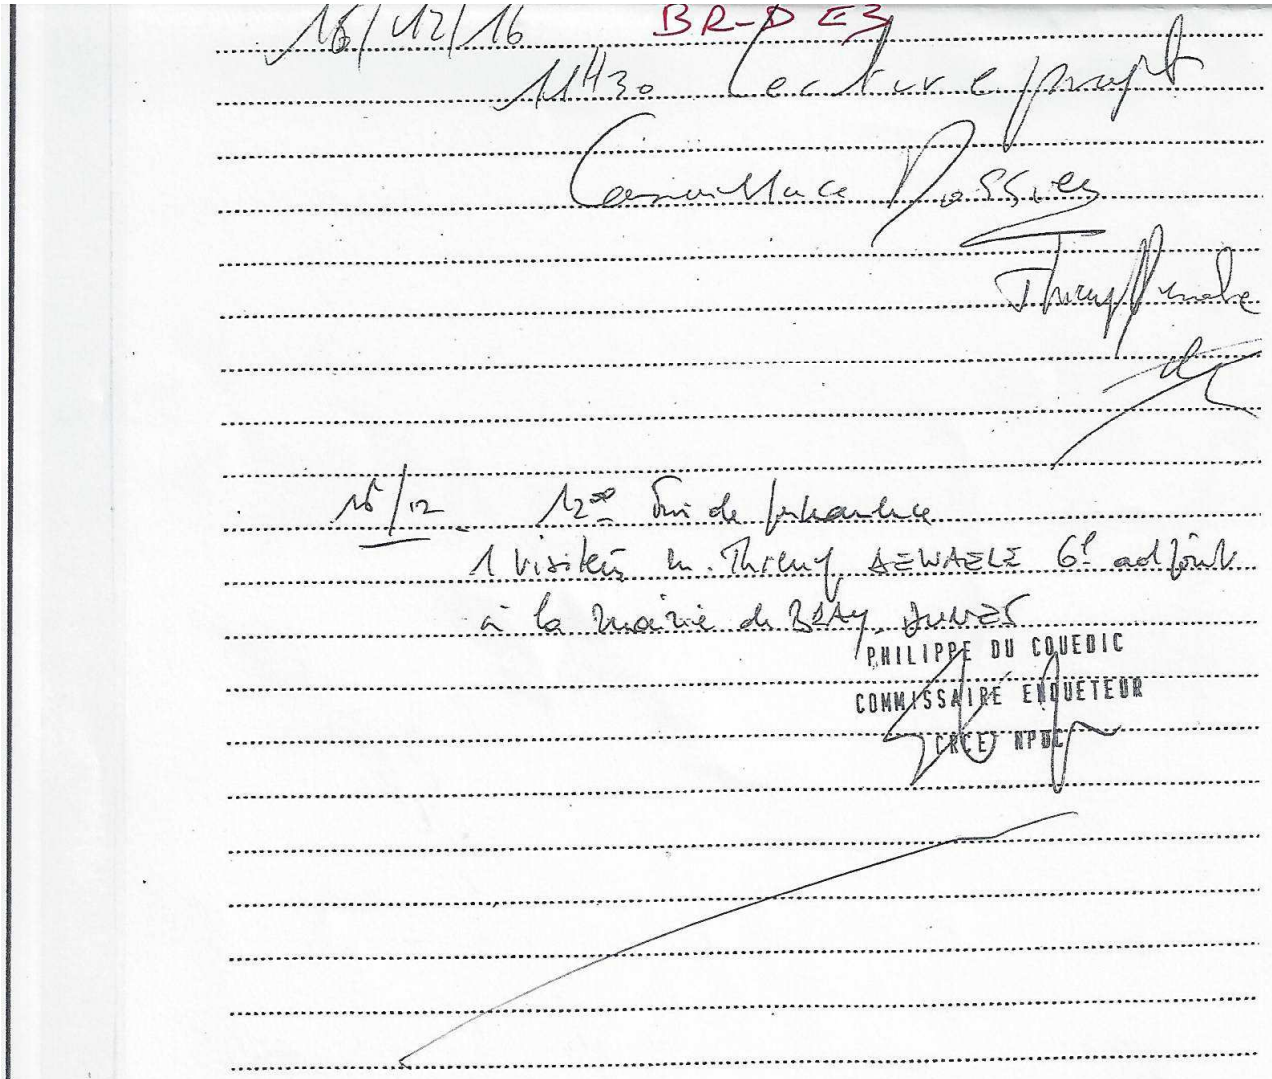 15/12/16 BR-D E3
11H30 Lecture projet
Connaissance Dossier
Thierry
15/12 - 12h00 Fin de permanence
1 visiteur, M. Thierry DEWAELE 6e adjoint
à la mairie de BRAY-DUNES
PHILIPPE DU COUEDIC
COMMISSAIRE ENQUETEUR
CRCE NPDC